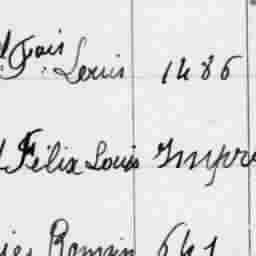 Fois Louis 1486
Félix Louis Impr
Romain 641